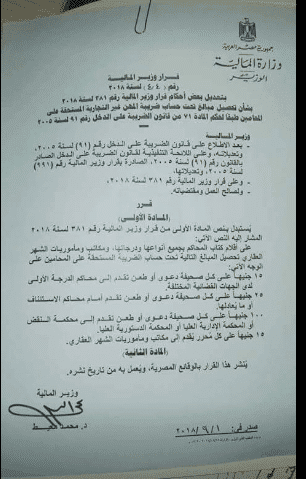 جمهورية مصر العربية
وزارة المالية
الوزير
قرار وزير المالية
رقم (٤٠٤) لسنة ٢٠١٨
بتعديل بعض أحكام قرار وزير المالية رقم ٣٨١ لسنة ٢٠١٨
بشأن تحصيل مبالغ تحت حساب ضريبة المهن غير التجارية المستحقة على
المحامين طبقا لحكم المادة ٧١ من قانون الضريبة على الدخل رقم ٩١ لسنة ٢٠٠٥
وزير المالية
- بعد الاطلاع على قانون الضريبة على الدخل رقم (٩١) لسنة ٢٠٠٥،
وتعديلاته، وعلى اللائحة التنفيذية لقانون الضريبة على الدخل الصادر
بالقانون رقم (٩١) لسنة ٢٠٠٥، الصادرة بقرار وزير المالية رقم (٩٩١)
لسنة ٢٠٠٥، وتعديلاتها.
- وعلى قرار وزير المالية رقم ٣٨١ لسنة ٢٠١٨.
- ولصالح العمل ومقتضياته.
قرر
(المادة الأولى)
يستبدل بنص المادة الأولى من قرار وزير المالية رقم ٣٨١ لسنة ٢٠١٨
المشار إليه النص الآتي:
على أقلام كتاب المحاكم بجميع أنواعها ودرجاتها، ومكاتب ومأموريات الشهر
العقاري تحصيل المبالغ التالية تحت حساب الضريبة المستحقة على المحامين على
الوجه الآتي:
٢٥ جنيهاً على كل صحيفة دعوى أو طعن تقدم إلى محاكم الدرجة الأولى
لدى الجهات القضائية المختلفة.
٥٠ جنيهاً على كل صحيفة دعوى أو طعن تقدم أمام محاكم الاستئناف
أو ما يعادلها.
١٠٠ جنيهاً على كل صحيفة دعوى أو طعن تقدم إلى محكمة النقض
أو المحكمة الإدارية العليا أو المحكمة الدستورية العليا.
١٥ جنيهاً على كل محرر يُقدم إلى مكاتب ومأموريات الشهر العقاري.
(المادة الثانية)
يُنشر هذا القرار بالوقائع المصرية، ويُعمل به من تاريخ نشره.
وزير المالية
د. محمد معيط
صدر في: ٢٠١٨/٩/١